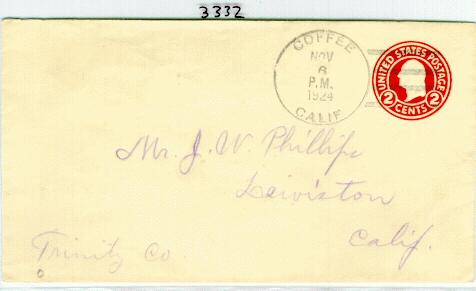 3332
COFFEE
NOV
6
P.M.
1924
CALIF
UNITED STATES POSTAGE
2 CENTS 2
Mr. J. W. Phillips
Lewiston
Calif.
Trinity Co.